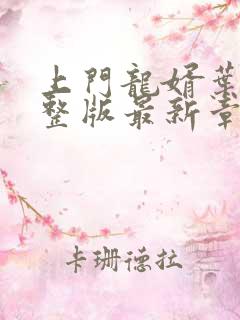 上門龍婿葉
整版最新章
卡珊德拉